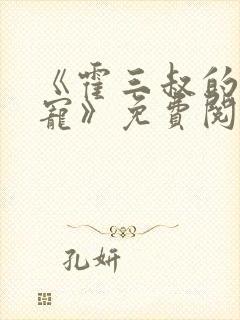 《霍三叔的
寵》免費閱
孔妍